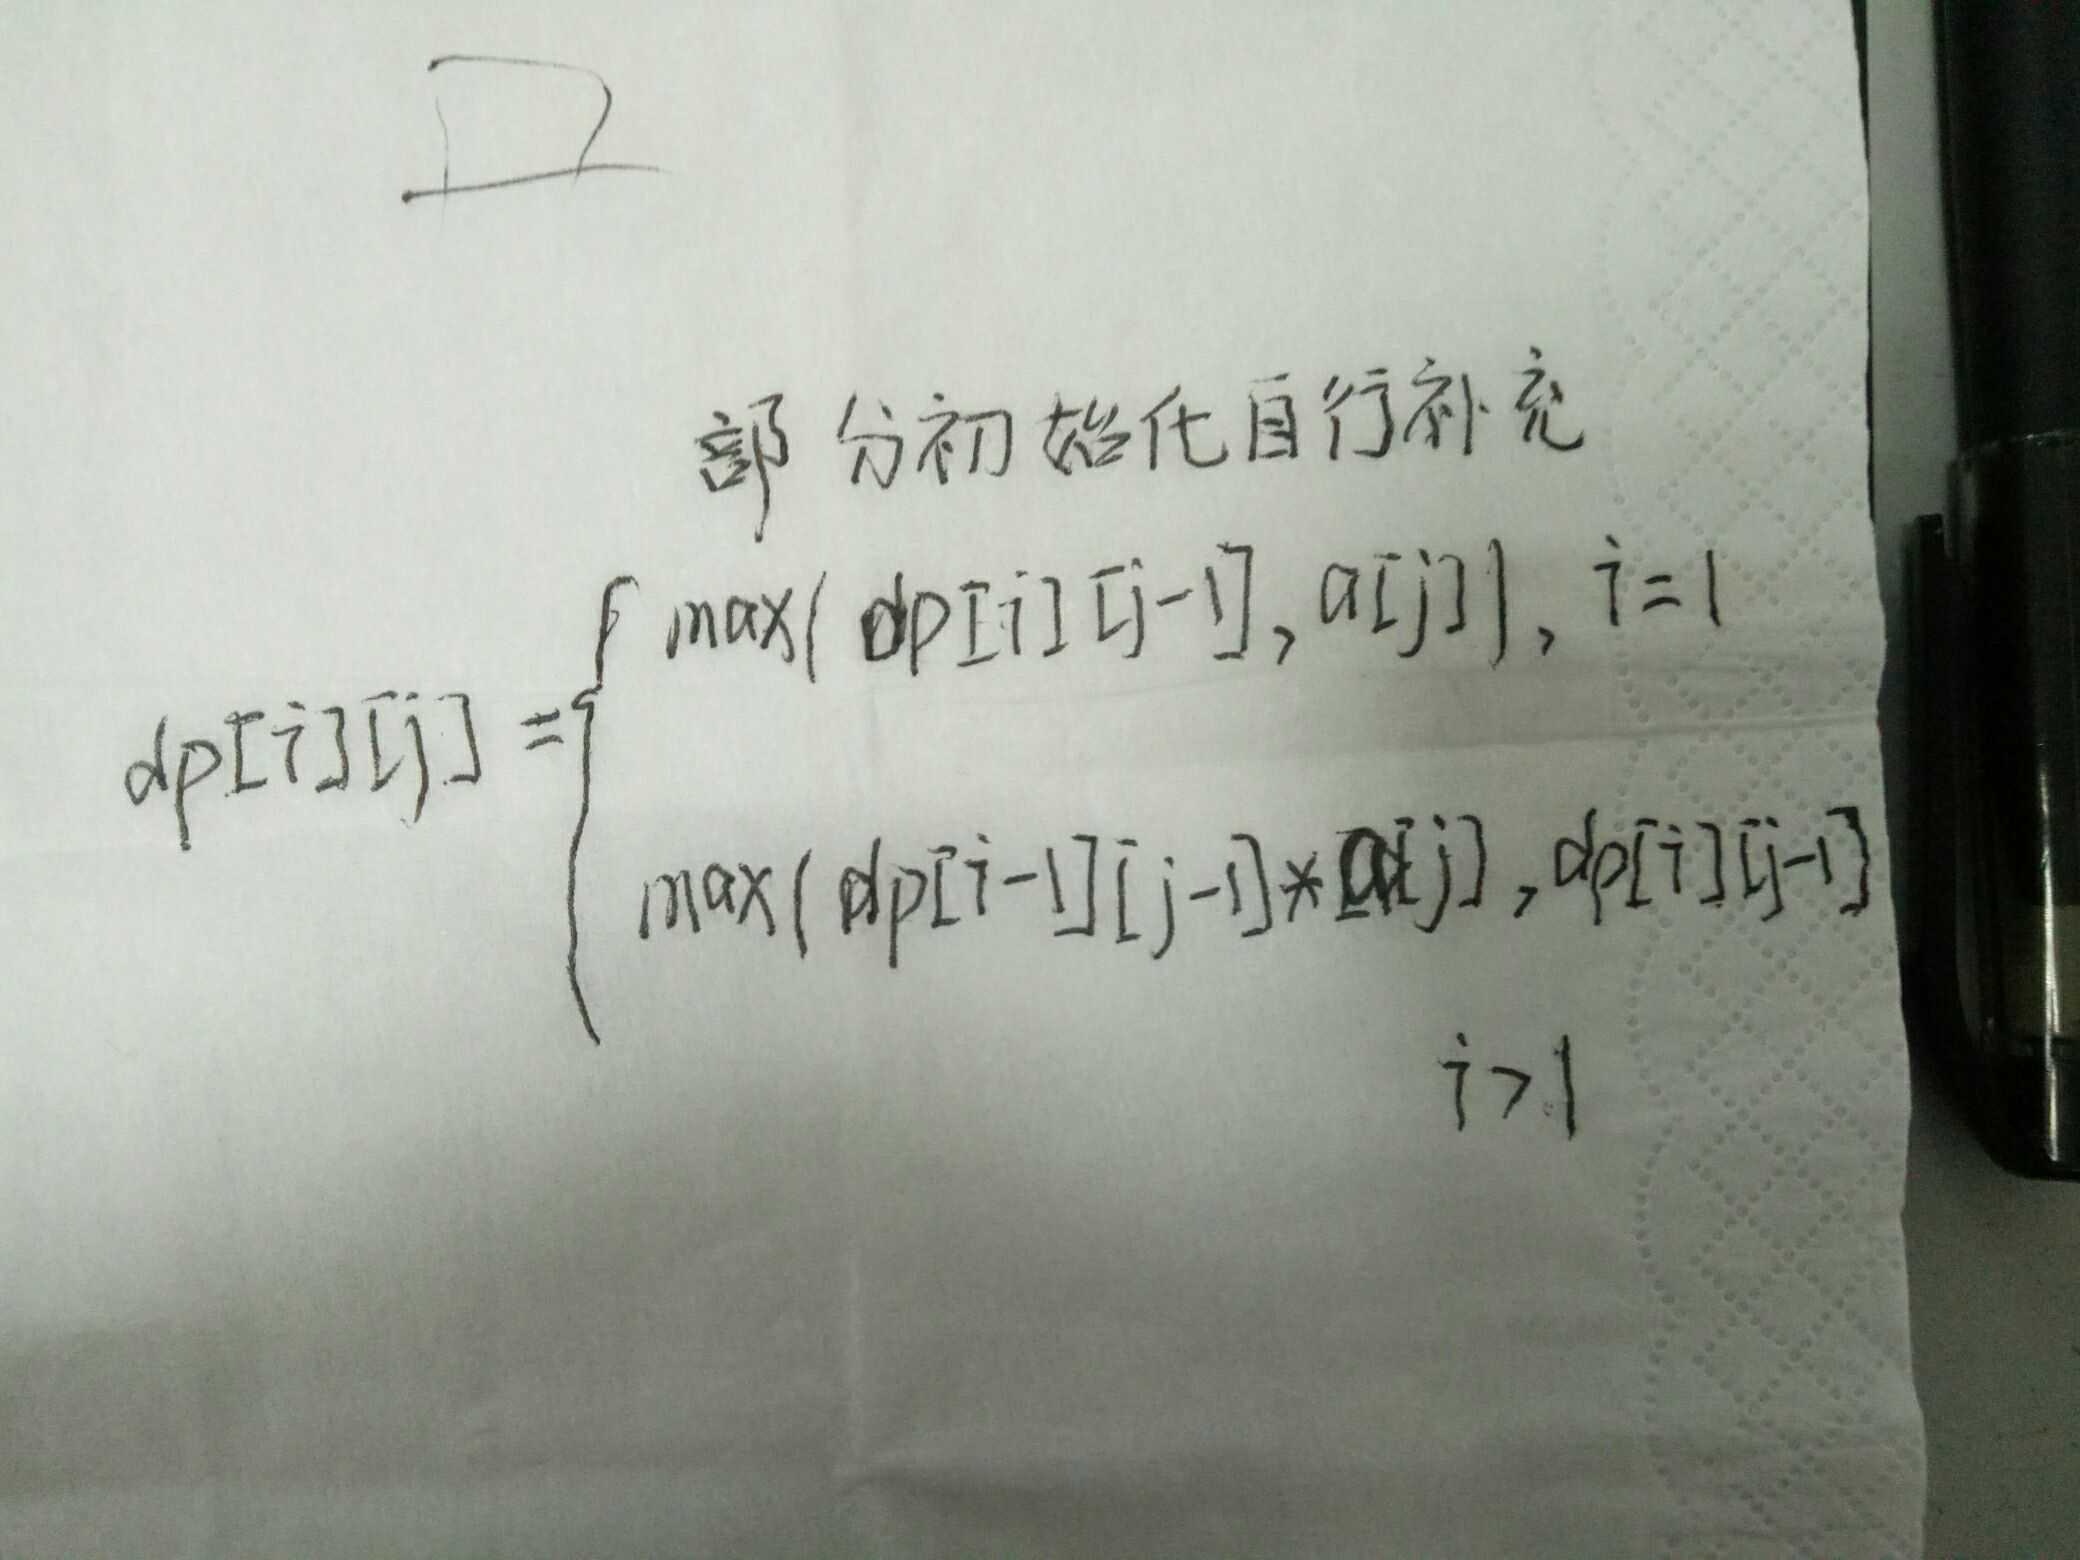 D
部分初始化自行补充
max( dp[i][j-1], a[j]), i=1
dp[i][j] =
max( dp[i-1][j-1]*a[j], dp[i][j-1]
i>1